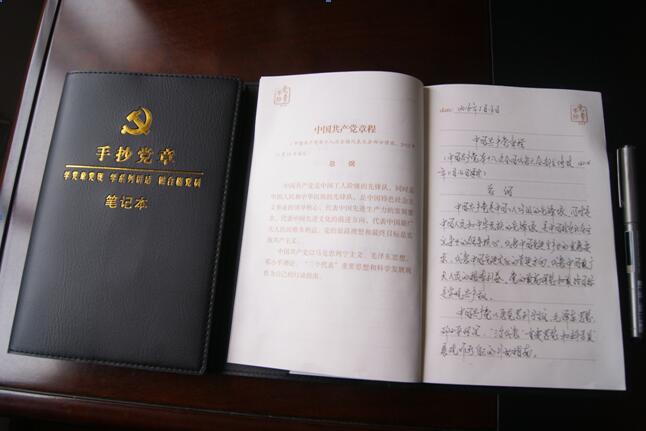 手抄党章
学党章党规 学系列讲话 做合格党员
笔记本
中国共产党章程
总 纲
中国共产党是中国工人阶级的先锋队，同时是
中国人民和中华民族的先锋队，是中国特色社会主
义事业的领导核心，代表中国先进生产力的发展要
求，代表中国先进文化的前进方向，代表中国最广
大人民的根本利益。党的最高理想和最终目标是
实现共产主义。
中国共产党以马克思列宁主义、毛泽东思想、
邓小平理论、“三个代表”重要思想和科学发展观
作为自己的行动指南。
date:
中国共产党章程
总 纲
中国共产党是中国工人阶级的先锋队，同时是
中国人民和中华民族的先锋队，是中国特色社会主
义事业的领导核心，代表中国先进生产力的发展要
求，代表中国先进文化的前进方向，代表中国最广
大人民的根本利益。党的最高理想和最终目标
是实现共产主义。
中国共产党以马克思列宁主义、毛泽东思想、
邓小平理论、“三个代表”重要思想和科学发
展观作为自己的行动指南。